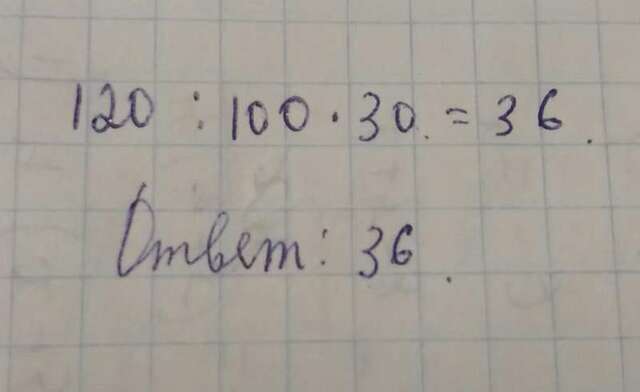 120 : 100 · 30 = 36.
Ответ: 36.